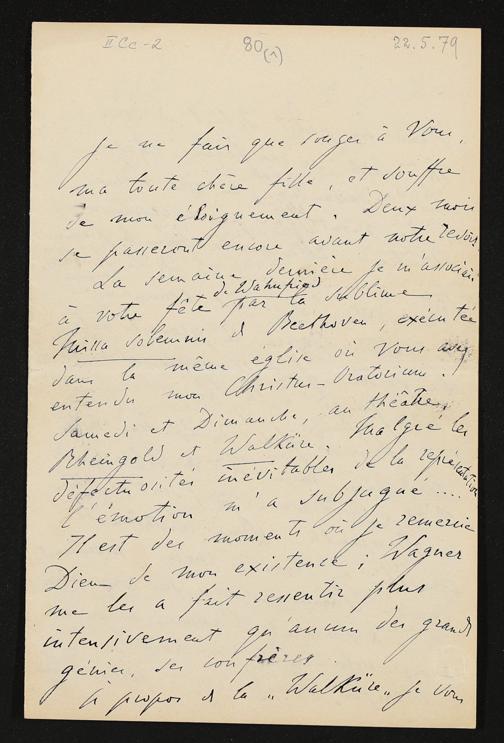 II Cc-2 80(1) 22.5.79
Je ne fais que songer à Vous,
ma toute chère fille, et souffre
de mon éloignement. Deux mois
se passeront encore avant notre revoir.
La semaine dernière je m'associais
de Wahnfried
à votre fête par la sublime
Missa solemnis de Beethoven, exécutée
dans la même église où Vous avez
entendu mon Christus-Oratorium.
Samedi et Dimanche, au théâtre,
Rheingold et Walküre. Malgré les
défectuosités inévitables de la représentation
l'émotion m'a subjugué....
Il est des moments où je remercie
Dieu de mon existence; Wagner
me les a fait ressentir plus
intensivement qu'aucun des grands
génies, ses confrères.
à propos de la „Walküre„ je vous